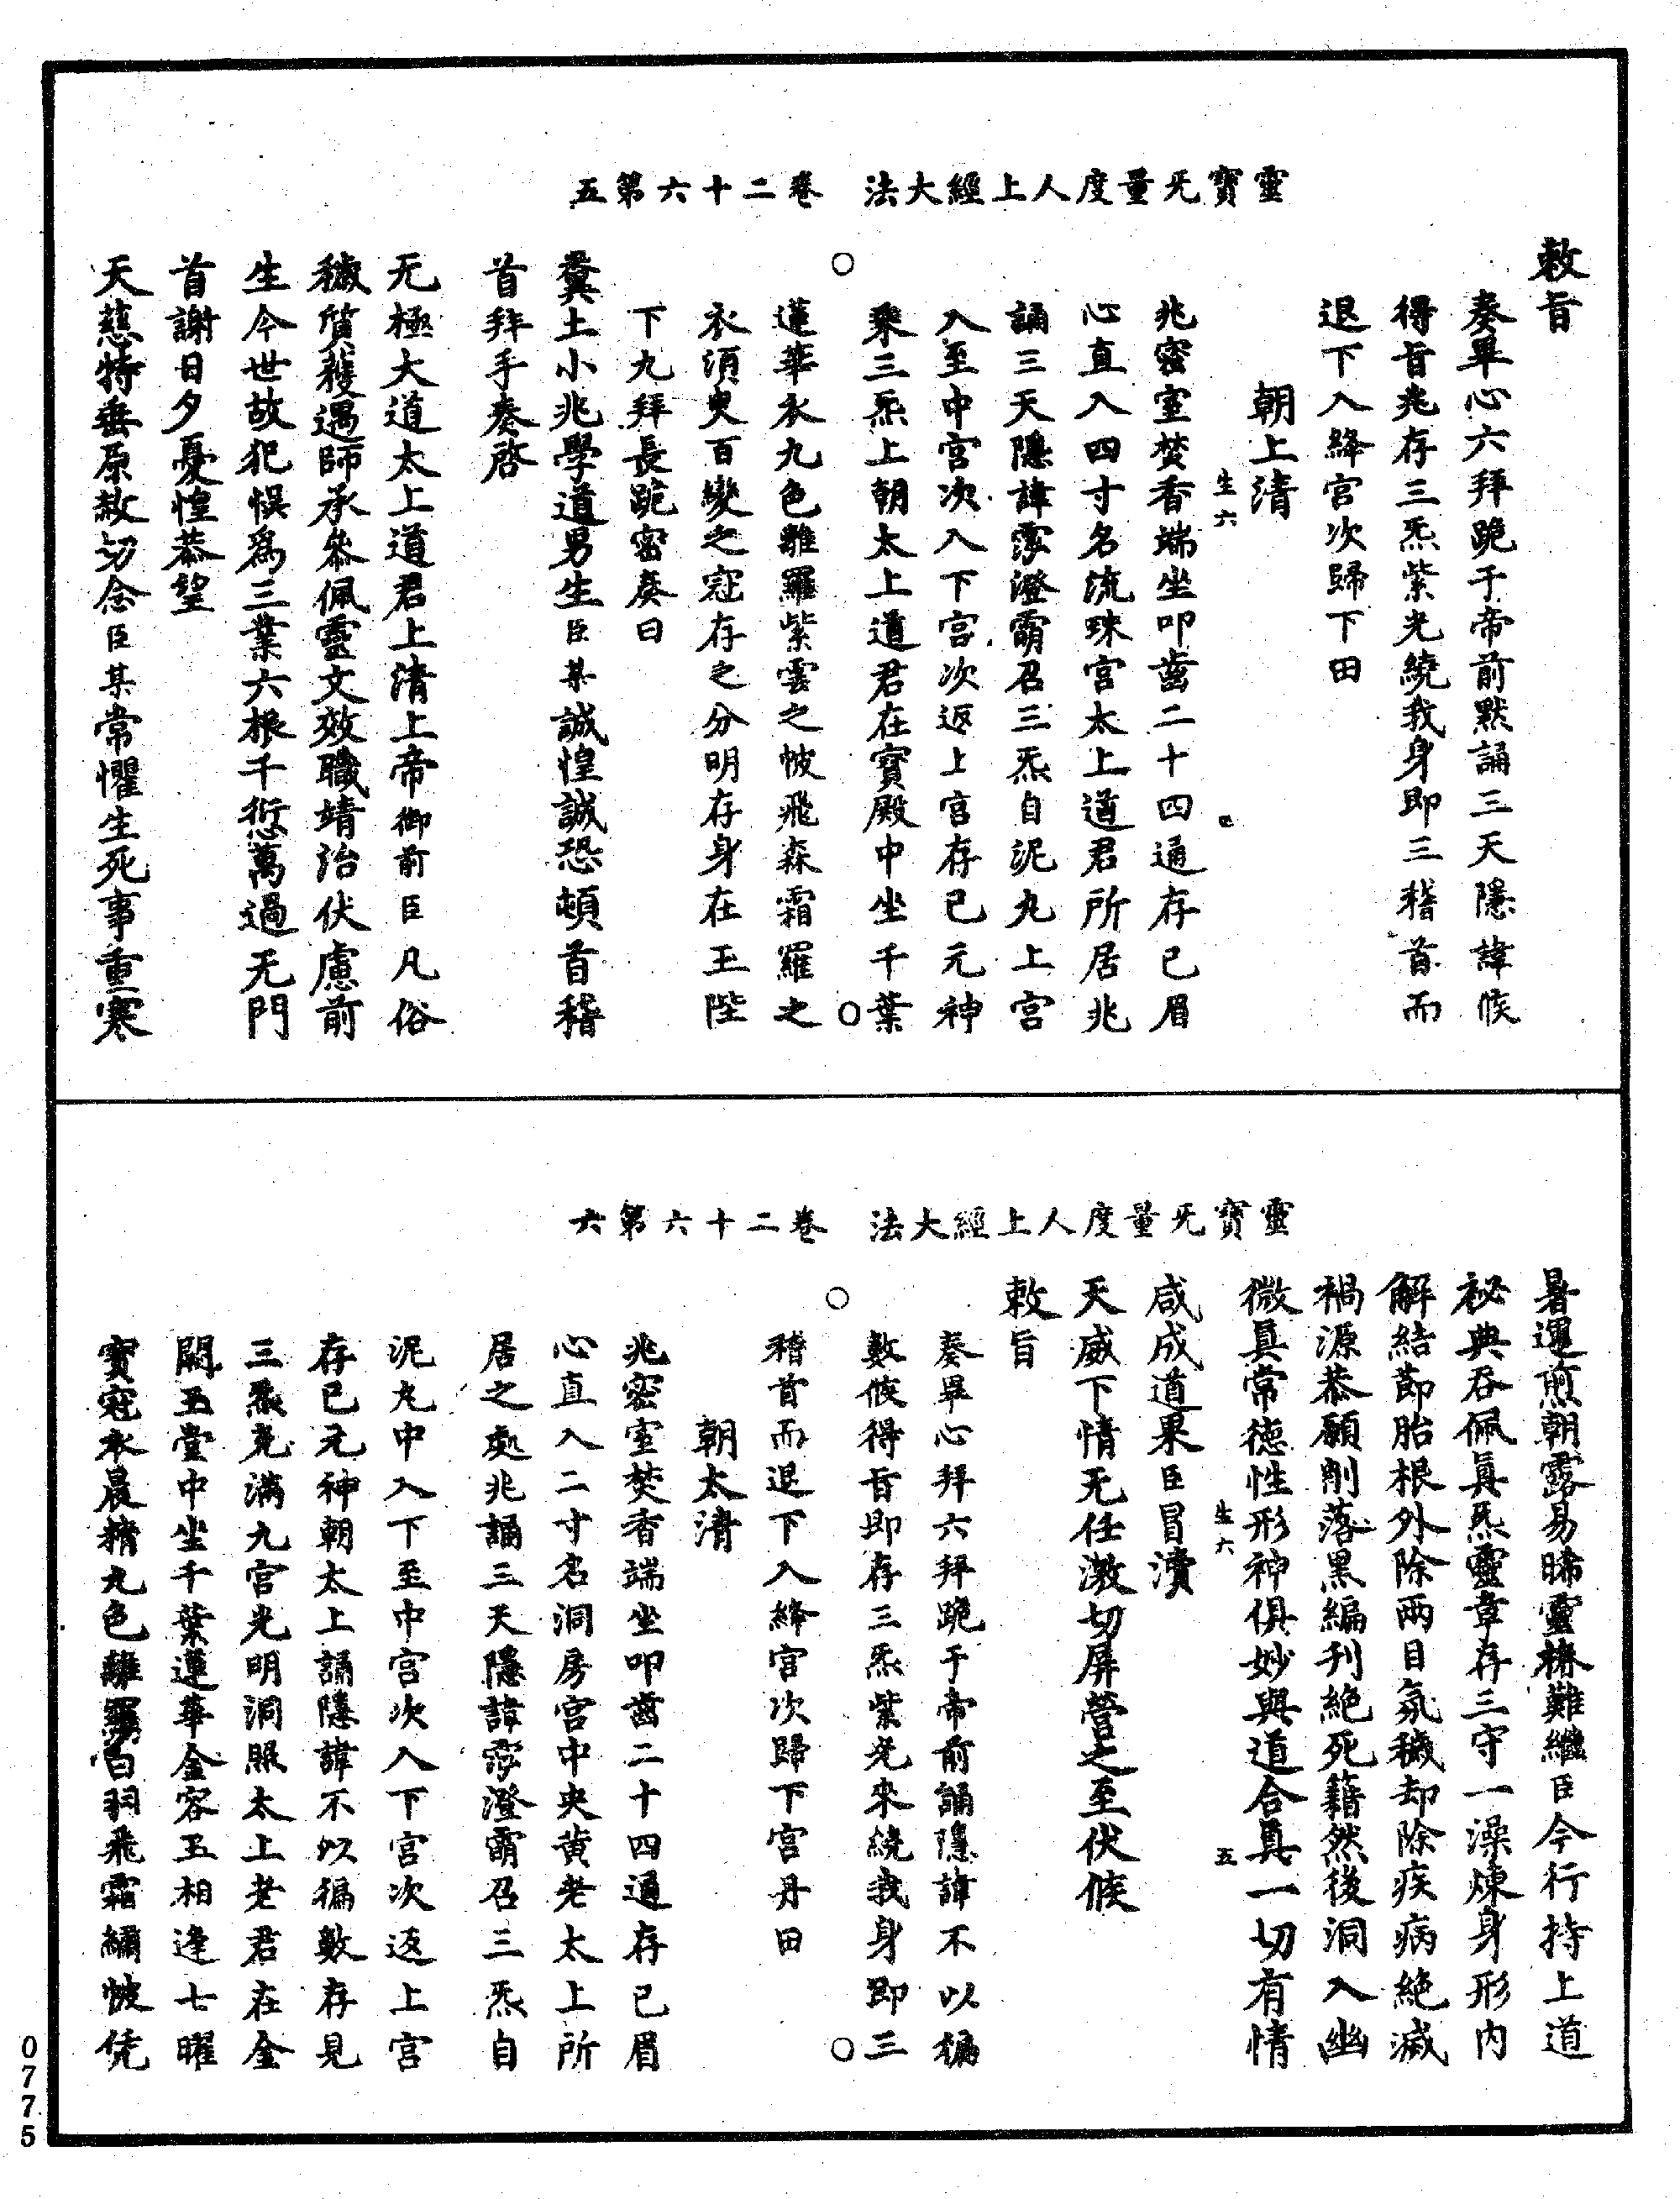 靈寶无量度人上經大法　卷二十六第五
敕旨
奏畢心六拜跪于帝前默誦三天隱諱候
得旨兆存三炁紫光繞我身即三稽首而
退下入絳宮次歸下田
朝上清
生六
兆密室焚香端坐叩齒二十四通存已眉
心直入四寸名流珠宮太上道君所居兆
誦三天隱諱霐澄霌召三炁自泥丸上宮
入至中宮次入下宮次返上宮存己元神
乘三炁上朝太上道君在寶殿中坐千葉
蓮華衣九色離羅紫雲之帔飛森霜羅之
衣須臾百變之冠存之分明存身在玉陛
下九拜長跪密奏曰
糞土小兆學道男生臣某誠惶誠恐頓首稽
首拜手奏啓
无極大道太上道君上清上帝御前臣凡俗
穢質獲遇師承叅佩靈文效職靖治伏慮前
生今世故犯悞爲三業六根千愆萬過无門
首謝日夕憂惶恭望
天慈特垂原赦切念臣某常懼生死事重寒
靈寶无量度人上經大法　卷二十六第六
暑運煎朝露易晞靈椿難繼臣今行持上道
祕典吞佩真炁靈章存三守一澡煉身形内
解結節胎根外除兩目氛穢却除疾病絶滅
禍源恭願削落黑編刊絶死籍然後洞入幽
微真常德性形神俱妙與道合真一切有情
生六
五
咸成道果臣冒瀆
天威下情无任激切屏營之至伏候
敕旨
奏畢心拜六拜跪于帝前誦隱諱不以徧
數候得旨即存三炁紫光來繞我身即三
稽首而退下入絳宮次歸下宮丹田
朝太清
兆密室焚香端坐叩齒二十四通存已眉
心直入二寸名洞房宮中央黄老太上所
居之處兆誦三天隱諱霐澄霌召三炁自
泥丸中入下至中宮次入下宮次返上宮
存已元神朝太上誦隱諱不以徧數存見
三炁光滿九宮光明洞照太上老君在金
闕玉堂中坐千葉蓮華金容玉相逢七曜
寶冠衣晨精九色離羅白羽飛霜繡帔凭
0775